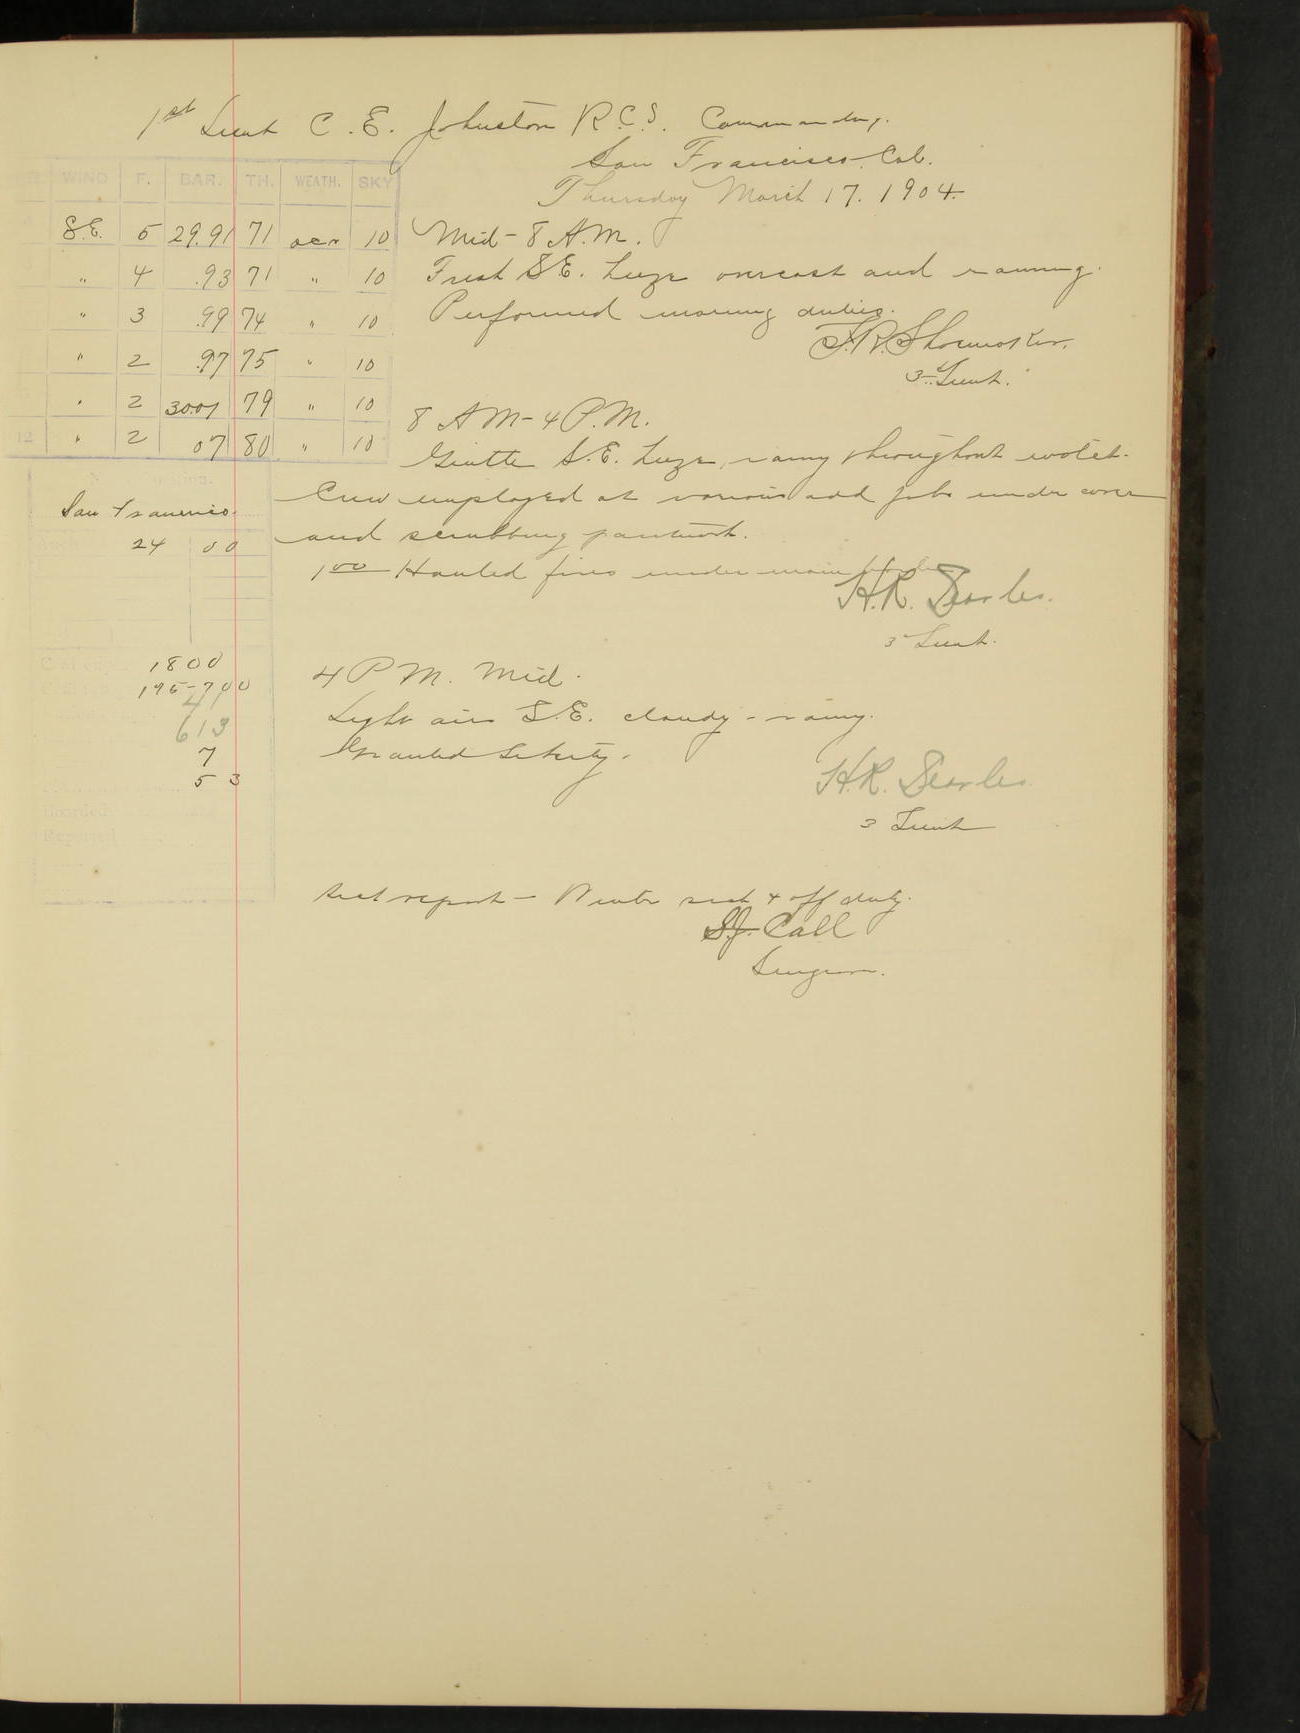 1st Lieut C. E. Johnston R.C.S. Commanding.
San Francisco Cal.
Thursday March 17. 1904.
WIND F. BAR. TH. WEATH. SKY
S.E. 5 29.91 71 ocr 10
" 4 .93 71 " 10
" 3 .99 74 " 10
" 2 .97 75 " 10
" 2 30.01 79 " 10
12 " 2 07 80 " 10
Mid - 8 A.M.
Fresh S.E. breeze overcast and raining.
Performed morning duties.
F.R. Shoemaker.
3. Lieut.
8 AM - 4 P.M.
Gentle S.E. breeze, rainy throughout watch.
Crew employed at various odd jobs under cover
and scrubbing paintwork.
1 00 Hauled fires under main
H.R. Searles.
3 Lieut.
San Francisco.
24 00
1800
195-700
41
613
7
5 3
Boarded
Reported
4 PM. Mid.
Light airs S.E. cloudy - rainy.
Granted liberty.
H.R. Searles
3 Lieut
Sick report - sick & off duty.
S.J. Call
Surgeon.